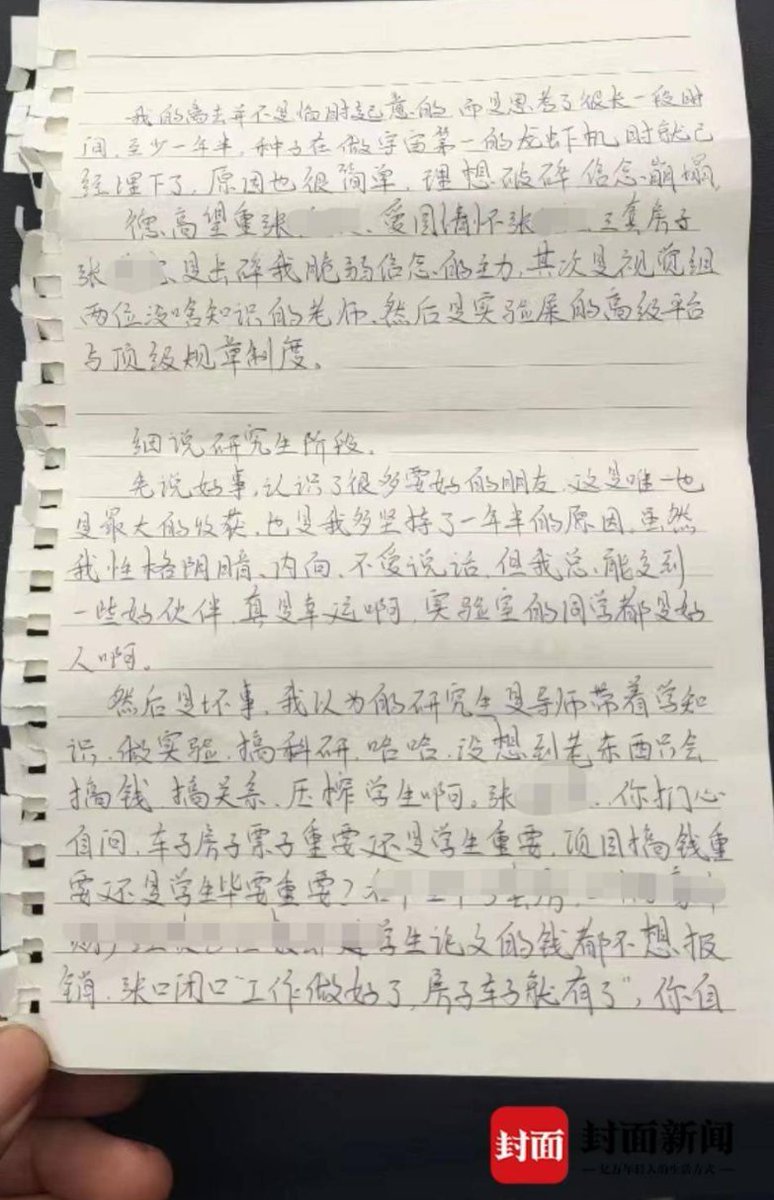 我的离去并不是临时起意的,而是思考了很长一段时
间,至少一年半,种子在做宇宙第一的龙虾机时就已
经埋下了,原因也很简单,理想破碎信念崩塌,
德高望重张、爱国情怀张、三套房子
张是击碎我脆弱信念的主力,其次是视觉组
两位没啥知识的老师、然后是实验室的高级平台
与顶级规章制度。
细说研究生阶段。
先说好事,认识了很多要好的朋友,这是唯一也
是最大的收获,也是我多坚持了一年半的原因,虽然
我性格阴暗、内向、不爱说话,但我总能交到
一些好伙伴,真是幸运啊,实验室的同学都是好
人啊。
然后是坏事,我以为的研究生是导师带着学知
识、做实验、搞科研,哈哈,没想到老东西只会
搞钱、搞关系、压榨学生啊。张、你扪心
自问,车子房子票子重要还是学生重要,项目搞钱重
要还是学生毕要重要?
学生论文的钱都不想报
销,张口闭口“工作做好了,房子车子就有了”,你自
封面 封面新闻
亿万年轻人的生活方式